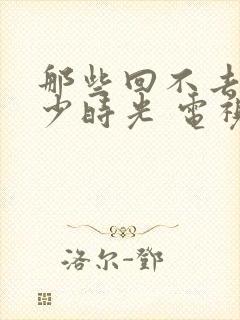 那些回不去
少時光 電視
洛尔-鄧